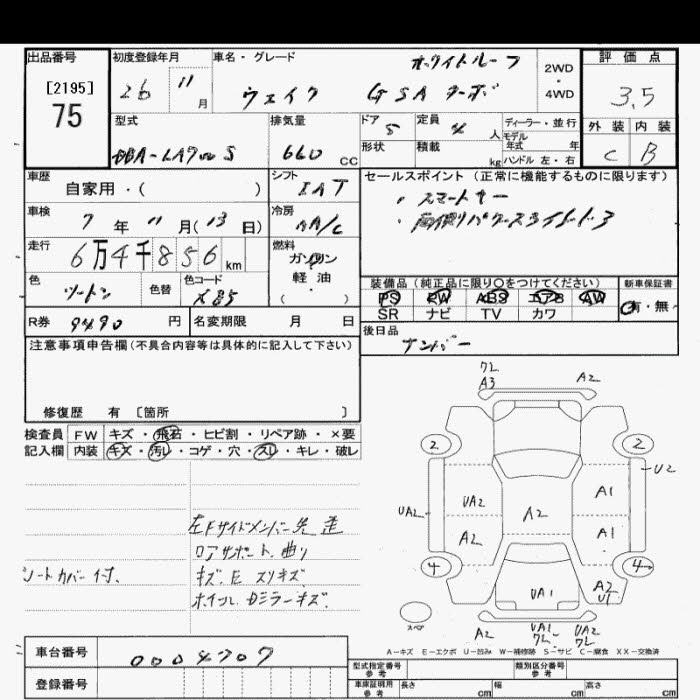 出品番号
[2195]
75
初度登録年月
26 11 月
車名・グレード
ホワイトルーフ
ウェイク GSA ターボ
2WD
・
4WD
評価点
3.5
外装 内装
C B
型式
DBA-LA700S
排気量
660 CC
ドア 5
定員 4 人
形状
積載 kg
ディーラー・並行
モデル
年式 年
ハンドル 左・右
車歴
自家用・( )
シフト
IAT
車検
7 年 11 月(13 日)
冷房
AA/C
走行
6万4千856 km
燃料
ガソリン
軽油
( )
色
ツートン
色替
色コード
X85
R券 9490 円
名変期限 月 日
セールスポイント(正常に機能するものに限ります)
・スマートキー
・両側パワースライドドア
装備品(純正品に限り〇をつけてください)
PS PW ABS エアB AW
SR ナビ TV カワ
新車保証書
有・無
後日品
ナンバー
注意事項申告欄(不具合内容等は具体的に記入して下さい)
修復歴 有 〔箇所 〕
検査員
記入欄
FW キズ・飛石・ヒビ割・リペア跡・×要
内装 キズ・汚レ・コゲ・穴・スレ・キレ・破レ
左Fサイドメンバー先歪
ロアサポート曲り
シートカバー付.
キズ.E スリキズ
ホイール.Dミラーキズ.
ワレ
A3
A2
2
2
U2
UA2
UA2
A2
A2
A1
A1
4
4
UA1
A2
U1
スペア
A2
UA1
ワレ
UA2
ワレ
A-キズ E-エクボ U-凹み W-補修跡 S-サビ C-腐食 XX-交換済
車台番号 0004707
登録番号
型式指定番号
参考
類別区分番号
参考
車庫証明用
参考
長さ cm
幅 cm
高さ cm